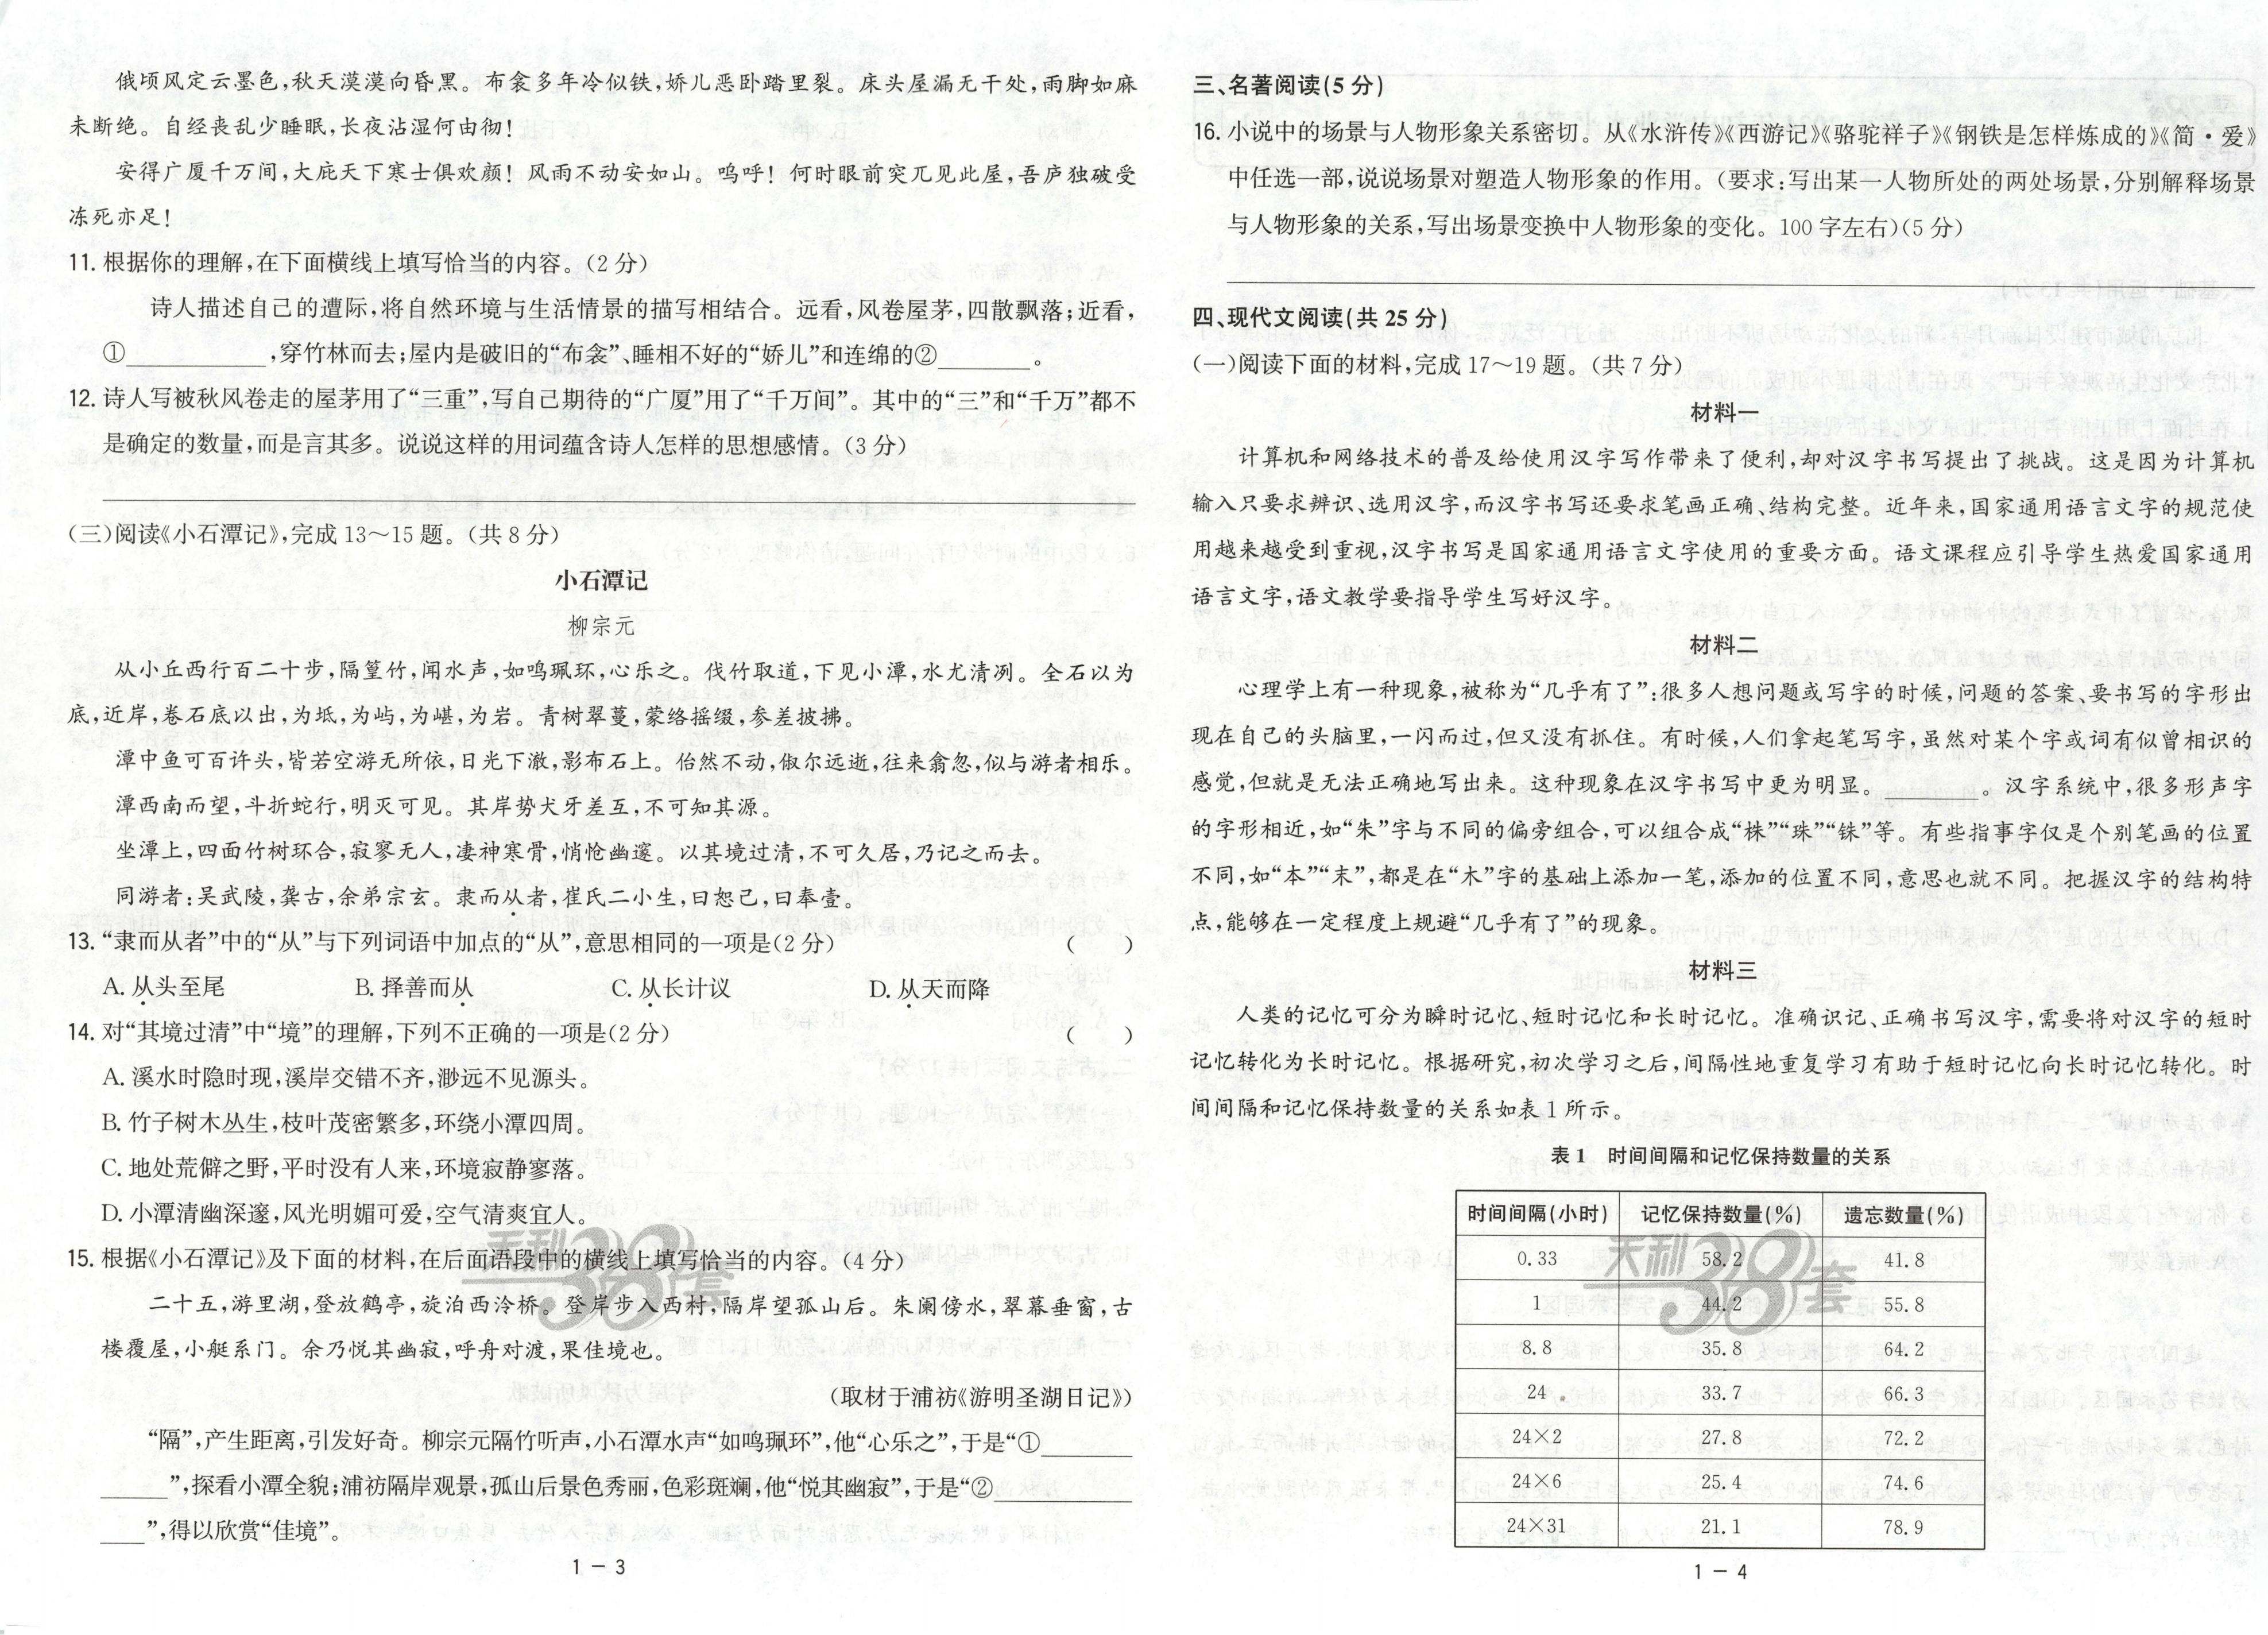 俄顷风定云墨色,秋天漠漠向昏黑。布衾多年冷似铁,娇儿恶卧踏里裂。床头屋漏无干处,雨脚如麻
未断绝。自经丧乱少睡眠,长夜沾湿何由彻!
安得广厦千万间,大庇天下寒士俱欢颜!风雨不动安如山。呜呼!何时眼前突兀见此屋,吾庐独破受
冻死亦足!
11. 根据你的理解,在下面横线上填写恰当的内容。(2 分)
诗人描述自己的遭际,将自然环境与生活情景的描写相结合。远看,风卷屋茅,四散飘落;近看,
①____________,穿竹林而去;屋内是破旧的“布衾”、睡相不好的“娇儿”和连绵的②________。
12. 诗人写被秋风卷走的屋茅用了“三重”,写自己期待的“广厦”用了“千万间”。其中的“三”和“千万”都不
是确定的数量,而是言其多。说说这样的用词蕴含诗人怎样的思想感情。(3 分)
(三)阅读《小石潭记》,完成 13～15 题。(共 8 分)
小石潭记
柳宗元
从小丘西行百二十步,隔篁竹,闻水声,如鸣珮环,心乐之。伐竹取道,下见小潭,水尤清冽。全石以为
底,近岸,卷石底以出,为坻,为屿,为嵁,为岩。青树翠蔓,蒙络摇缀,参差披拂。
潭中鱼可百许头,皆若空游无所依,日光下澈,影布石上。佁然不动,俶尔远逝,往来翕忽,似与游者相乐。
潭西南而望,斗折蛇行,明灭可见。其岸势犬牙差互,不可知其源。
坐潭上,四面竹树环合,寂寥无人,凄神寒骨,悄怆幽邃。以其境过清,不可久居,乃记之而去。
同游者:吴武陵,龚古,余弟宗玄。隶而从者,崔氏二小生,曰恕己,曰奉壹。
13. “隶而从者”中的“从”与下列词语中加点的“从”,意思相同的一项是(2 分) ( )
A. 从头至尾 B. 择善而从 C. 从长计议 D. 从天而降
14. 对“其境过清”中“境”的理解,下列不正确的一项是(2 分) ( )
A. 溪水时隐时现,溪岸交错不齐,渺远不见源头。
B. 竹子树木丛生,枝叶茂密繁多,环绕小潭四周。
C. 地处荒僻之野,平时没有人来,环境寂静寥落。
D. 小潭清幽深邃,风光明媚可爱,空气清爽宜人。
15. 根据《小石潭记》及下面的材料,在后面语段中的横线上填写恰当的内容。(4 分)
二十五,游里湖,登放鹤亭,旋泊西泠桥。登岸步入西村,隔岸望孤山后。朱阑傍水,翠幕垂窗,古
楼覆屋,小艇系门。余乃悦其幽寂,呼舟对渡,果佳境也。
(取材于浦祊《游明圣湖日记》)
“隔”,产生距离,引发好奇。柳宗元隔竹听声,小石潭水声“如鸣珮环”,他“心乐之”,于是“①________
______”,探看小潭全貌;浦祊隔岸观景,孤山后景色秀丽,色彩斑斓,他“悦其幽寂”,于是“②____________
____”,得以欣赏“佳境”。
1 - 3
三、名著阅读(5 分)
16. 小说中的场景与人物形象关系密切。从《水浒传》《西游记》《骆驼祥子》《钢铁是怎样炼成的》《简·爱》
中任选一部,说说场景对塑造人物形象的作用。(要求:写出某一人物所处的两处场景,分别解释场景
与人物形象的关系,写出场景变换中人物形象的变化。100 字左右)(5 分)
四、现代文阅读(共 25 分)
(一)阅读下面的材料,完成 17～19 题。(共 7 分)
材料一
计算机和网络技术的普及给使用汉字写作带来了便利,却对汉字书写提出了挑战。这是因为计算机
输入只要求辨识、选用汉字,而汉字书写还要求笔画正确、结构完整。近年来,国家通用语言文字的规范使
用越来越受到重视,汉字书写是国家通用语言文字使用的重要方面。语文课程应引导学生热爱国家通用
语言文字,语文教学要指导学生写好汉字。
材料二
心理学上有一种现象,被称为“几乎有了”:很多人想问题或写字的时候,问题的答案、要书写的字形出
现在自己的头脑里,一闪而过,但又没有抓住。有时候,人们拿起笔写字,虽然对某个字或词有似曾相识的
感觉,但就是无法正确地写出来。这种现象在汉字书写中更为明显。________。汉字系统中,很多形声字
的字形相近,如“朱”字与不同的偏旁组合,可以组合成“株”“珠”“铢”等。有些指事字仅是个别笔画的位置
不同,如“本”“末”,都是在“木”字的基础上添加一笔,添加的位置不同,意思也就不同。把握汉字的结构特
点,能够在一定程度上规避“几乎有了”的现象。
材料三
人类的记忆可分为瞬时记忆、短时记忆和长时记忆。准确识记、正确书写汉字,需要将对汉字的短时
记忆转化为长时记忆。根据研究,初次学习之后,间隔性地重复学习有助于短时记忆向长时记忆转化。时
间间隔和记忆保持数量的关系如表 1 所示。
表 1 时间间隔和记忆保持数量的关系
时间间隔(小时) 记忆保持数量(%) 遗忘数量(%)
0.33 58.2 41.8
1 44.2 55.8
8.8 35.8 64.2
24 33.7 66.3
24×2 27.8 72.2
24×6 25.4 74.6
24×31 21.1 78.9
1 - 4
天利38套
天利38套